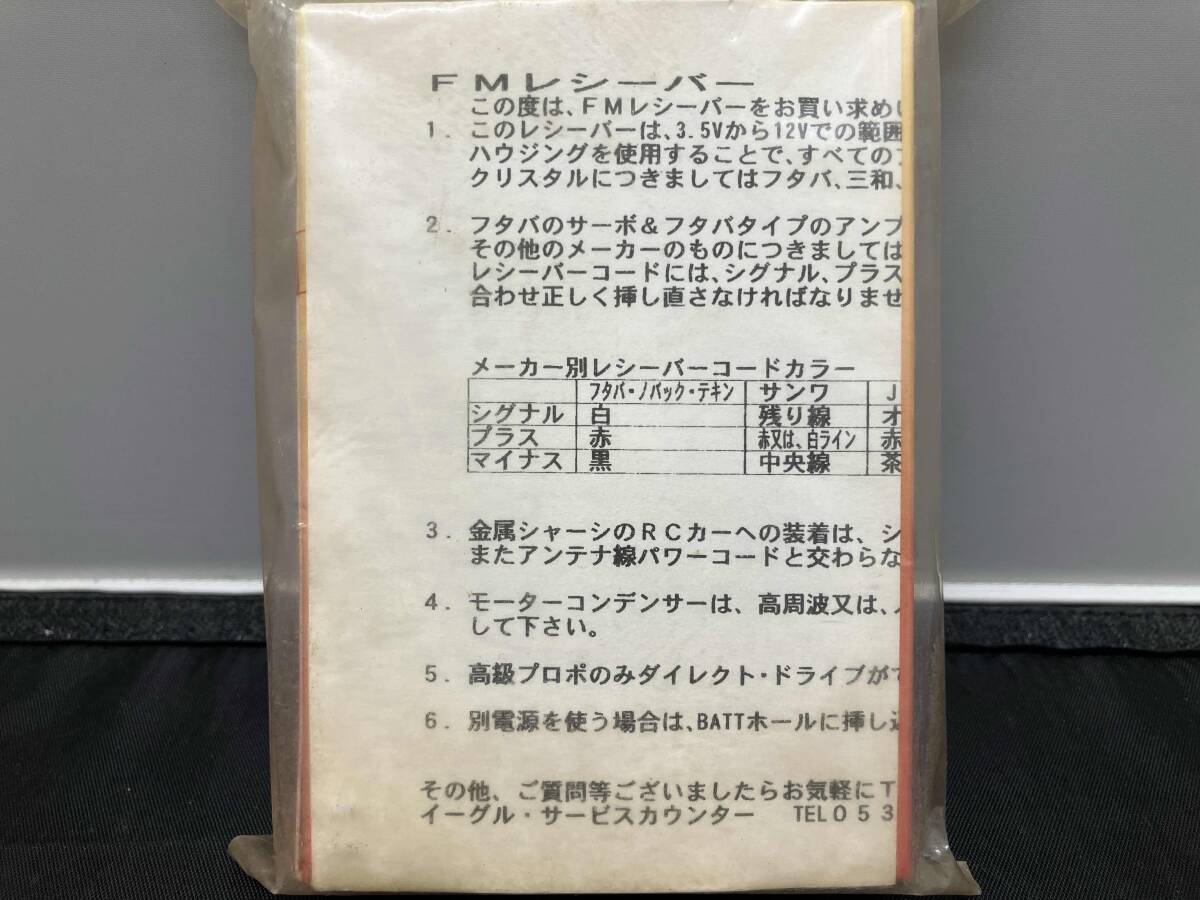 FMレシーバー
この度は、FMレシーバーをお買い求め
1. このレシーバーは、3.5Vから12Vでの範囲
ハウジングを使用することで、すべての
クリスタルにつきましてはフタバ、三和、
2. フタバのサーボ&フタバタイプのアンプ
その他のメーカーのものにつきましては
レシーバーコードには、シグナル、プラス
合わせ正しく挿し直さなければなりませ
メーカー別レシーバーコードカラー
フタバ・ノバック・テキン サンワ J
シグナル 白 残り線 オ
プラス 赤 赤又は、白ライン 赤
マイナス 黒 中央線 茶
3. 金属シャーシのRCカーへの装着は、シ
またアンテナ線パワーコードと交わらな
4. モーターコンデンサーは、高周波又は、
して下さい。
5. 高級プロポのみダイレクト・ドライブが
6. 別電源を使う場合は、BATTホールに挿し込
その他、ご質問等ございましたらお気軽にT
イーグル・サービスカウンター TEL053